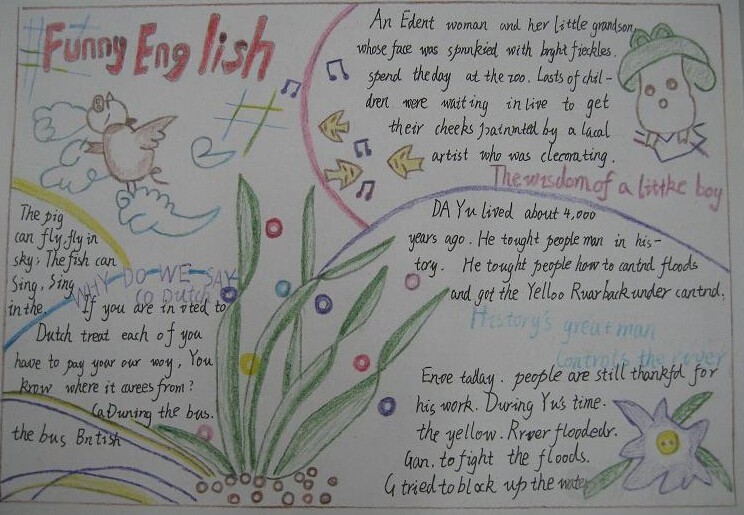 Funny English
An Edent woman and her little grandson,
whose face was sprinkied with bright fjeckles.
spend the day at the zoo. Losts of chil-
dren were waiting in live to get
their cheeks painmted by a lacal
artist who was clecorating.
The wisdom of a littke boy
The pig
can fly, fly in
sky. The fish can
Sing, Sing
in the.
WHY DO WE SAY
GO Dutch
If you are in vited to
Dutch treat each of you
have to pay your our woy, You
know where it carees from?
the bus.
the bus British
DA Yu lived about 4,000
years ago. He tought people man in his-
tory. He tought people how to cantnd floods
and got the Yelloo Ruar back under cantnd.
History's great man
Controls the river
Enoe taday. people are still thankful for
his work. During Yu's time.
the yellow. Rrver floodedr.
Gan. to fight the floods.
G tried to block up the water